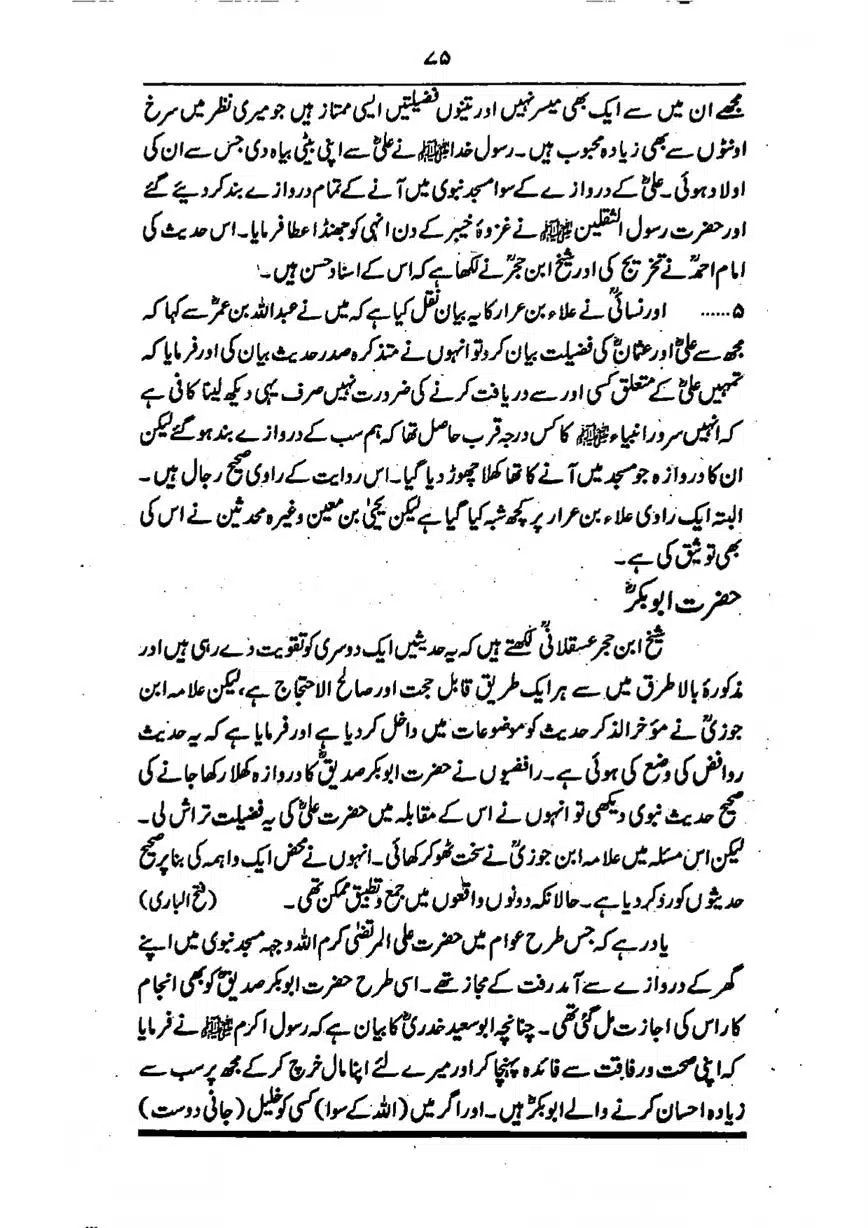 ۷۵
مجھے ان میں سے ایک بھی میسر نہیں اور تینوں فضیلتیں ایسی ممتاز ہیں جو میری نظر میں سرخ
اونٹوں سے بھی زیادہ محبوب ہیں۔ رسول خدا ﷺ نے علیؓ سے اپنی بیٹی بیاہ دی جس سے ان کی
اولاد ہوئی۔ علیؓ کے دروازے کے سوا مسجد نبوی میں آنے کے تمام دروازے بند کر دیئے گئے
اور حضرت رسول الثقلین ﷺ نے غزوۂ خیبر کے دن انہی کو جھنڈا عطا فرمایا۔ اس حدیث کی
امام احمدؒ نے تخریج کی اور شیخ ابن حجرؒ نے لکھا ہے کہ اس کے اسناد حسن ہیں۔
۵...... اور نسائیؒ نے علاء بن عرار کا یہ بیان نقل کیا ہے کہ میں نے عبداللہ بن عمرؓ سے کہا کہ
مجھ سے علیؓ اور عثمانؓ کی فضیلت بیان کرو تو انہوں نے متذکرہ صدر حدیث بیان کی اور فرمایا کہ
تمہیں علیؓ کے متعلق کسی اور سے دریافت کرنے کی ضرورت نہیں صرف یہی دیکھ لینا کافی ہے
کہ انہیں سرور انبیاء ﷺ کا کس درجہ قرب حاصل تھا کہ ہم سب کے دروازے بند ہو گئے لیکن
ان کا دروازہ جو مسجد میں آنے کا تھا کھلا چھوڑ دیا گیا۔ اس روایت کے راوی صحیح رجال ہیں۔
البتہ ایک راوی علاء بن عرار پر کچھ شبہ کیا گیا ہے لیکن یحییٰ بن معین وغیرہ محدثین نے اس کی
بھی توثیق کی ہے۔
حضرت ابوبکرؓ
شیخ ابن حجر عسقلانیؒ لکھتے ہیں کہ یہ حدیثیں ایک دوسری کو تقویت دے رہی ہیں اور
مذکورۂ بالا طرق میں سے ہر ایک طریق قابل حجت اور صالح الاحتجاج ہے، لیکن علامہ ابن
جوزیؒ نے مؤخر الذکر حدیث کو موضوعات میں داخل کر دیا ہے اور فرمایا ہے کہ یہ حدیث
روافض کی وضع کی ہوئی ہے۔ رافضیوں نے حضرت ابوبکر صدیقؓ کا دروازہ کھلا رکھا جانے کی
صحیح حدیث نبوی دیکھی تو انہوں نے اس کے مقابلہ میں حضرت علیؓ کی یہ فضیلت تراش لی۔
لیکن اس مسئلہ میں علامہ ابن جوزیؒ نے سخت ٹھوکر کھائی۔ انہوں نے محض ایک واہمہ کی بنا پر صحیح
حدیثوں کو رد کہہ دیا ہے۔ حالانکہ دونوں واقعوں میں جمع و تطبیق ممکن تھی۔ (فتح الباری)
یاد رہے کہ جس طرح عوام میں حضرت علی المرتضیٰ کرم اللہ وجہہ مسجد نبوی میں اپنے
گھر کے دروازے سے آمد رفت کے مجاز تھے۔ اسی طرح حضرت ابوبکر صدیقؓ کو بھی انجام
کار اس کی اجازت مل گئی تھی۔ چنانچہ ابو سعید خدریؓ کا بیان ہے کہ رسول اکرم ﷺ نے فرمایا
کہ اپنی صحبت و رفاقت سے فائدہ پہنچا کر اور میرے لئے اپنا مال خرچ کر کے مجھ پر سب سے
زیادہ احسان کرنے والے ابوبکرؓ ہیں۔ اور اگر میں (اللہ کے سوا) کسی کو خلیل (جانی دوست)